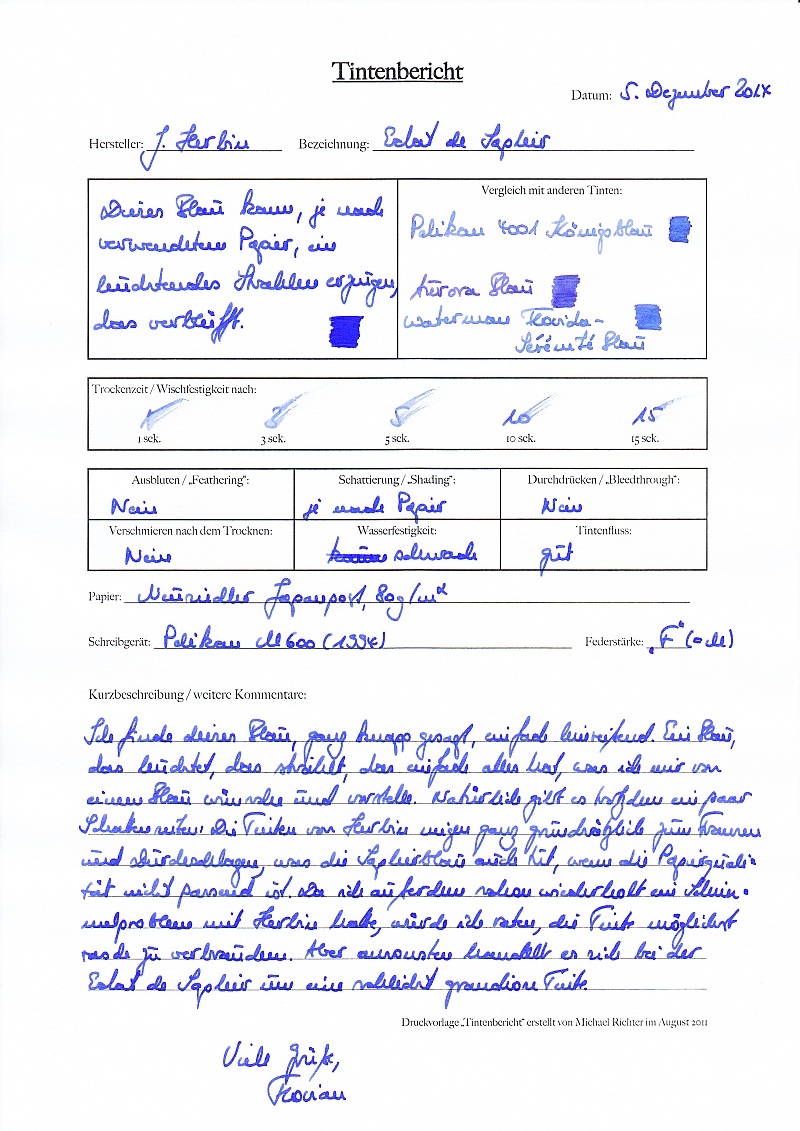 Tintenbericht
Datum: 5. Dezember 201
Hersteller: J. Herbin Bezeichnung: Eclat de Saphir
Dieses Blau kann, je nach
verwendetem Papier, ein
leuchtendes Strahlen erzeugen,
das verblüfft.
Vergleich mit anderen Tinten:
Pelikan 4001 Königsblau
Aurora Blau
Waterman Florida-
Sérénité Blau
Trockenzeit / Wischfestigkeit nach:
1 3 5 10 15
1 sek. 3 sek. 5 sek. 10 sek. 15 sek.
Ausbluten / „Feathering": Schattierung / „Shading": Durchdrücken / „Bleedthrough":
Nein je nach Papier Nein
Verschmieren nach dem Trocknen: Wasserfestigkeit: Tintenfluss:
Nein schwach gut
Papier: Neusiedler Japanpost, 80g/m²
Schreibgerät: Pelikan M600 (1994) Federstärke: „F" (=M)
Kurzbeschreibung / weitere Kommentare:
Ich finde dieses Blau, ganz knapp gesagt, einfach hinreißend. Ein Blau,
das leuchtet, das strahlt, das einfach alles hat, was ich mir von
einem Blau wünsche und vorstelle. Natürlich gibt es trotzdem ein paar
Schattenseiten: Die Tinten von Herbin neigen ganz grundsätzlich zum Fransen
und Durchschlagen, was die Saphirblau auch tut, wenn die Papierquali-
tät nicht passend ist. Da ich außerdem schon wiederholt ein Schim-
melproblem mit Herbin hatte, würde ich raten, die Tinte möglichst
rasch zu verbrauchen. Aber ansonsten handelt es sich bei der
Eclat de Saphir um eine schlicht grandiose Tinte.
Druckvorlage „Tintenbericht" erstellt von Michael Richter im August 2011
Viele Grüße,
Florian